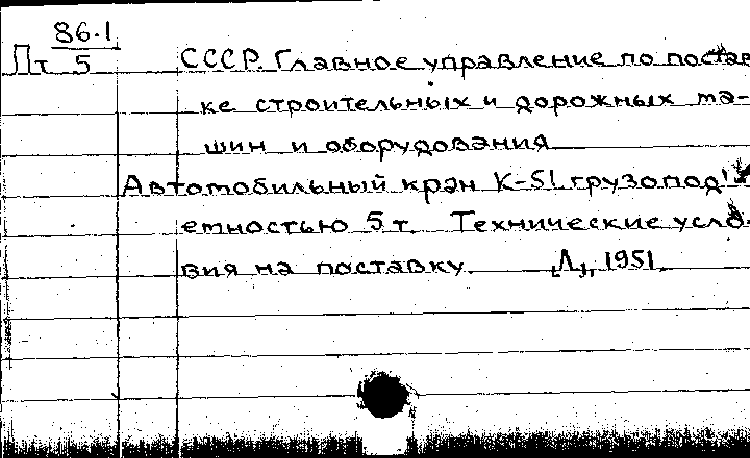 86.1
Пт 5
СССР. Главное управление по постав
ке строительных и дорожных ма-
шин и оборудования
Автомобильный кран К-51 грузопод'
емностью 5 т. Технические усло-
вия на поставку. [Л], 1951.